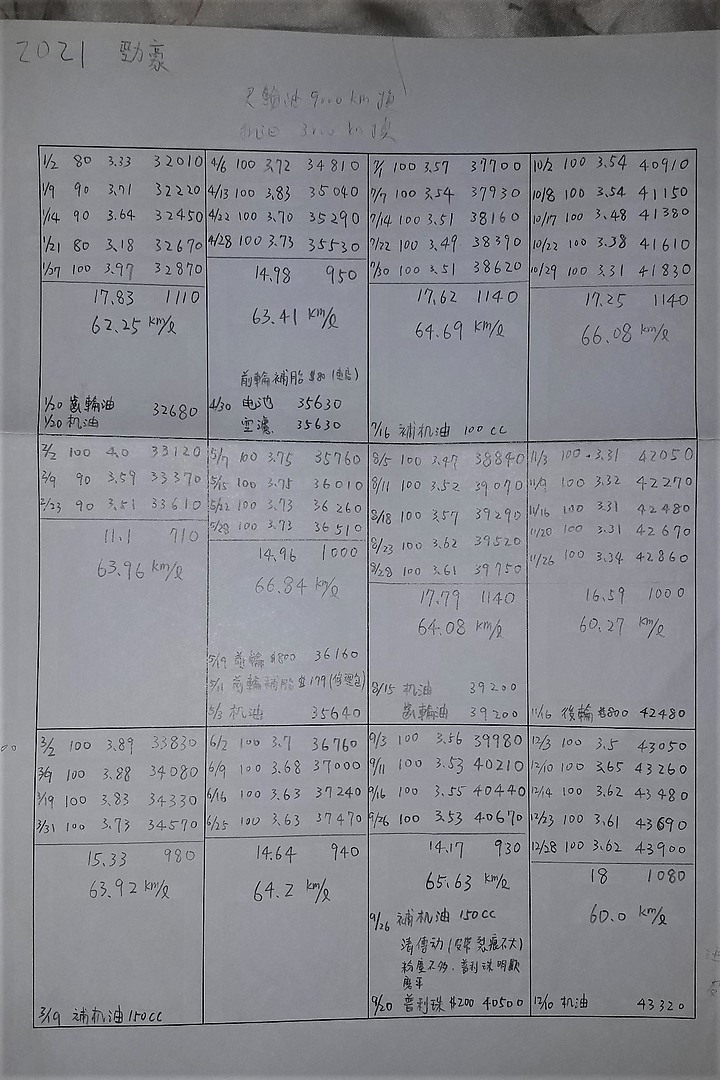 2021 勁豪
齒輪油 9000 km 換
机油 3000 km 換
1/2 80 3.33 32010
1/9 90 3.71 32220
1/14 90 3.64 32450
1/21 80 3.18 32670
1/27 100 3.97 32870
17.83 1110
62.25 km/ℓ
1/20 齒輪油 32680
1/20 机油
2/2 100 4.0 33120
2/9 90 3.59 33370
2/23 90 3.51 33610
11.1 710
63.96 km/ℓ
3/2 100 3.89 33830
3/9 100 3.88 34080
3/19 100 3.83 34330
3/31 100 3.73 34570
15.33 980
63.92 km/ℓ
3/19 補机油 150cc
4/6 100 3.72 34810
4/13 100 3.83 35040
4/22 100 3.70 35290
4/28 100 3.73 35530
14.98 950
63.41 km/ℓ
前輪補胎 $80
4/30 电池 35630
空濾 35630
5/7 100 3.75 35760
5/15 100 3.75 36010
5/22 100 3.73 36260
5/28 100 3.73 36510
14.96 1000
66.84 km/ℓ
5/19 前輪 $800 36160
5/11 前輪補胎 $179
5/3 机油 35640
6/2 100 3.7 36760
6/9 100 3.68 37000
6/16 100 3.63 37240
6/25 100 3.63 37470
14.64 940
64.2 km/ℓ
7/1 100 3.57 37700
7/7 100 3.54 37930
7/14 100 3.51 38160
7/22 100 3.49 38390
7/30 100 3.51 38620
17.62 1140
64.69 km/ℓ
7/16 補机油 100 cc
8/5 100 3.47 38840
8/11 100 3.52 39070
8/18 100 3.57 39290
8/23 100 3.62 39520
8/28 100 3.61 39750
17.79 1140
64.08 km/ℓ
8/15 机油 39200
齒輪油 39200
9/3 100 3.56 39980
9/11 100 3.53 40210
9/16 100 3.55 40440
9/26 100 3.53 40670
14.17 930
65.63 km/ℓ
9/26 補机油 150cc
清傳动 (皮帶裂痕不大)
粉塵不多．普利珠明顯
磨平
9/20 普利珠 $200 40500
10/2 100 3.54 40910
10/8 100 3.54 41150
10/17 100 3.48 41380
10/22 100 3.38 41610
10/29 100 3.31 41830
17.25 1140
66.08 km/ℓ
11/3 100 3.31 42050
11/9 100 3.32 42270
11/16 100 3.31 42480
11/20 100 3.31 42670
11/26 100 3.34 42860
16.59 1000
60.27 km/ℓ
11/16 後輪 $800 42480
12/3 100 3.5 43050
12/10 100 3.65 43260
12/14 100 3.62 43480
12/23 100 3.61 43690
12/28 100 3.62 43900
18 1080
60.0 km/ℓ
12/10 机油 43320